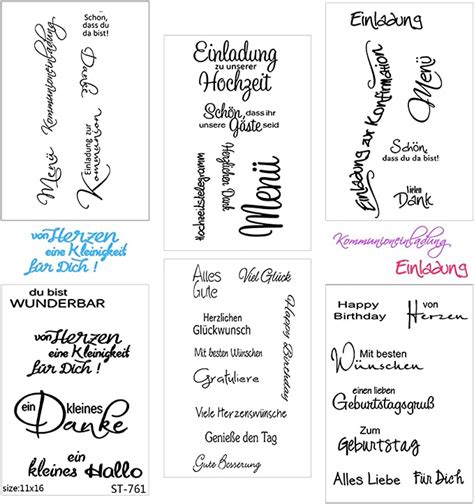 Menü
Kommunioneinladung
Schön,
dass du
da bist!
Danke
Einladung zur
Kommunion
Einladung
zu unserer
Hochzeit
Schön, dass ihr
unsere Gäste seid
Hochzeitstelegramm
Herzlichen Dank
Menü
Einladung
Einladung zur Konfirmation
Menü
Schön,
dass du da bist!
Vielen
Dank
von Herzen
eine Kleinigkeit
für Dich !
Kommunioneinladung
Einladung
du bist
WUNDERBAR
von Herzen
eine Kleinigkeit
für Dich !
ein kleines
Danke
ein
kleines Hallo
size:11x16 ST-761
Alles
Gute
Viel Glück
Herzlichen
Glückwunsch
Mit besten Wünschen
Gratuliere
Happy Birthday
Viele Herzenswünsche
Genieße den Tag
Gute Besserung
Happy
Birthday
von
Herzen
Mit besten
Wünschen
einen lieben
Geburtstagsgruß
Zum
Geburtstag
Alles Liebe
Für Dich